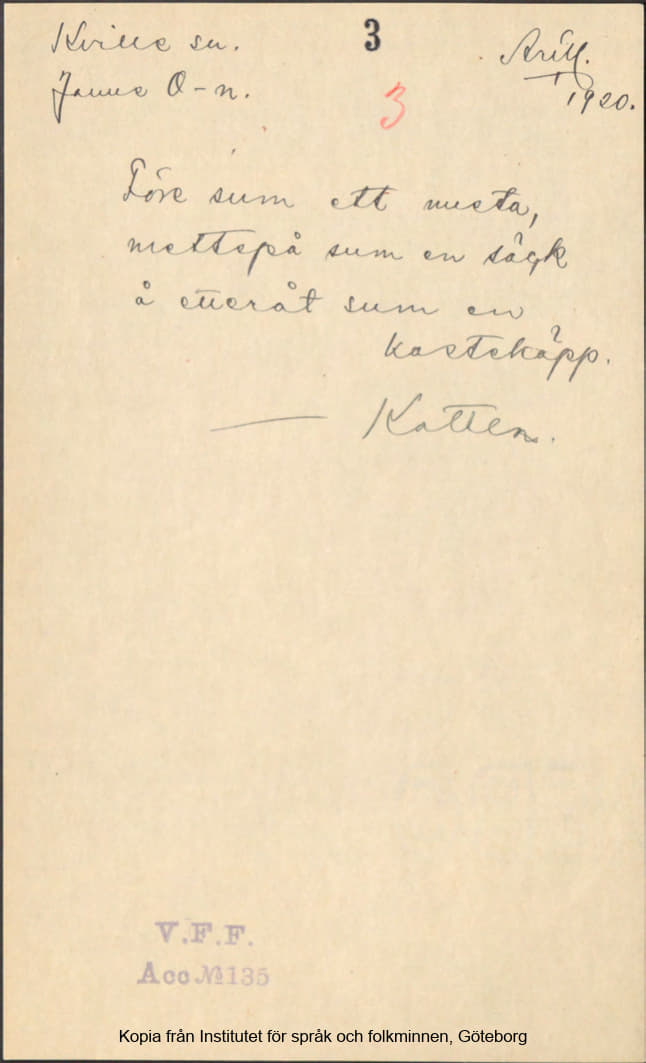 Kville sn.
3
April
1920.
Janne O-n.
3
Före sum ett nysta,
mettspå sum en säck
å etteråt sum en
kastekäpp.
— Katten.
V.F.F.
Acc № 135
Kopia från Institutet för språk och folkminnen, Göteborg